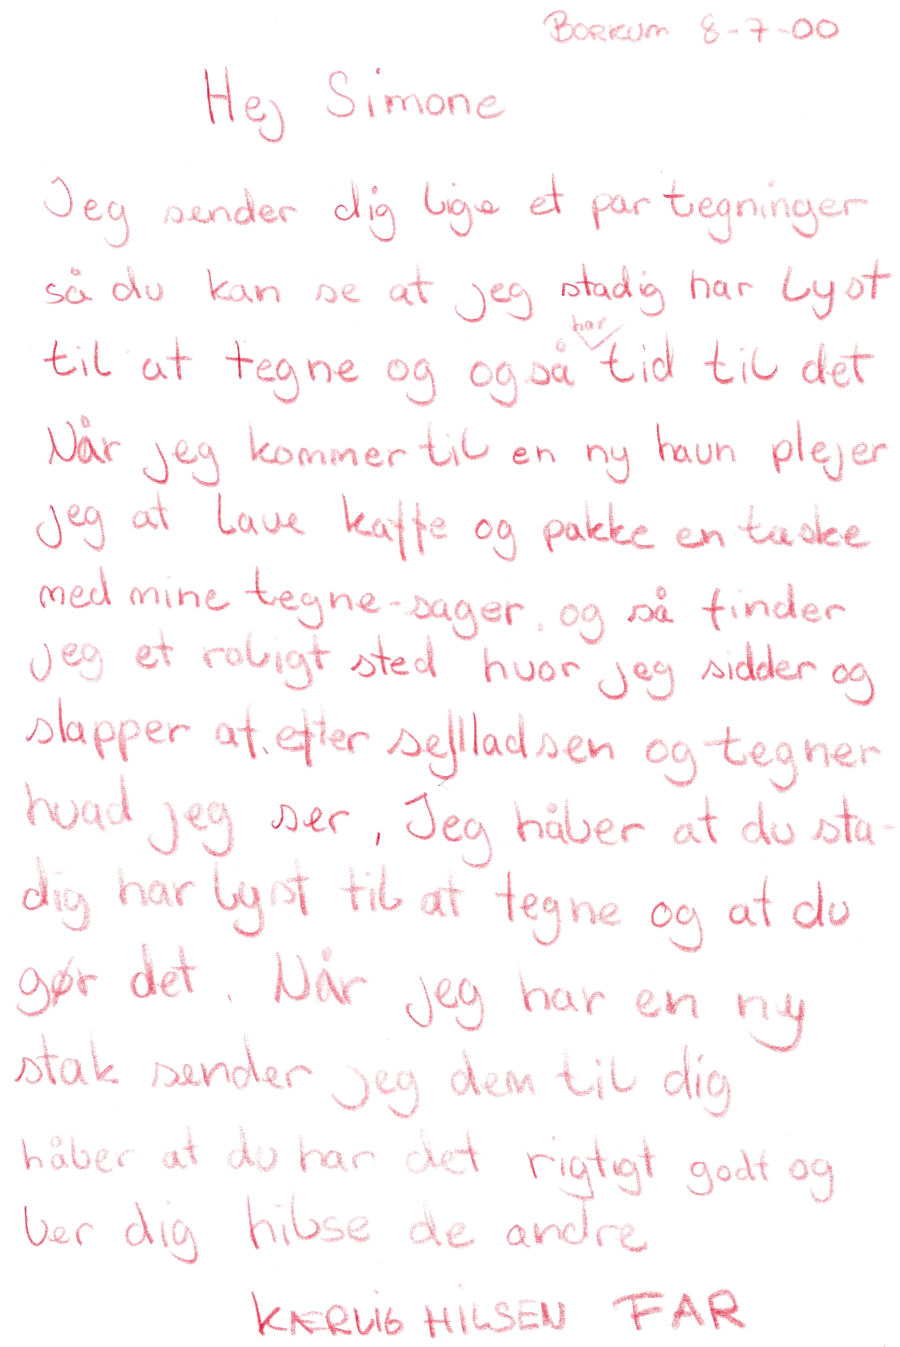 BORKUM 8-7-00
Hej Simone
Jeg sender dig lige et par tegninger
så du kan se at jeg stadig har lyst
til at tegne og også har tid til det
Når jeg kommer til en ny havn plejer
jeg at lave kaffe og pakke en taske
med mine tegne-sager. og så finder
jeg et roligt sted hvor jeg sidder og
slapper af. efter sejlladsen og tegner
hvad jeg ser, Jeg håber at du sta-
dig har lyst til at tegne og at du
gør det. Når jeg har en ny
stak sender jeg dem til dig
håber at du har det rigtigt godt og
ber dig hilse de andre
KÆRLIG HILSEN FAR